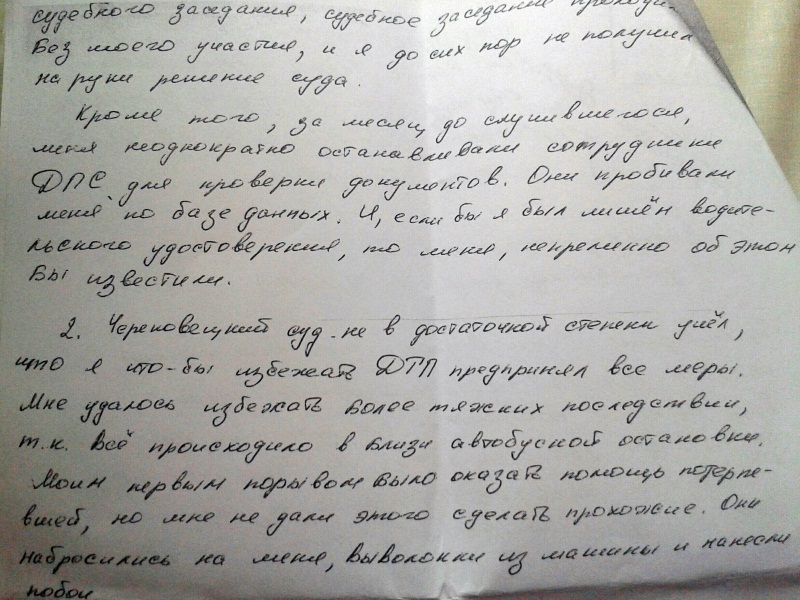 судебного заседания, судебное заседание проходи-
без моего участия, и я до сих пор не получил
на руки решение суда.
Кроме того, за месяц до случившегося,
меня неоднократно останавливали сотрудники
ДПС для проверки документов. Они пробивали
меня по базе данных. И, если бы я был лишён водите-
льского удостоверения, то меня, непременно об этом
бы известили.
2. Череповецкий суд не в достаточной степени учёл,
что я что-бы избежать ДТП предпринял все меры.
Мне удалось избежать более тяжких последствий,
т.к. всё происходило в близи автобусной остановки.
Моим первым порывом было оказать помощь потерпе-
вшей, но мне не дали этого сделать прохожие. Они
набросились на меня, выволокли из машины и нанесли
побои